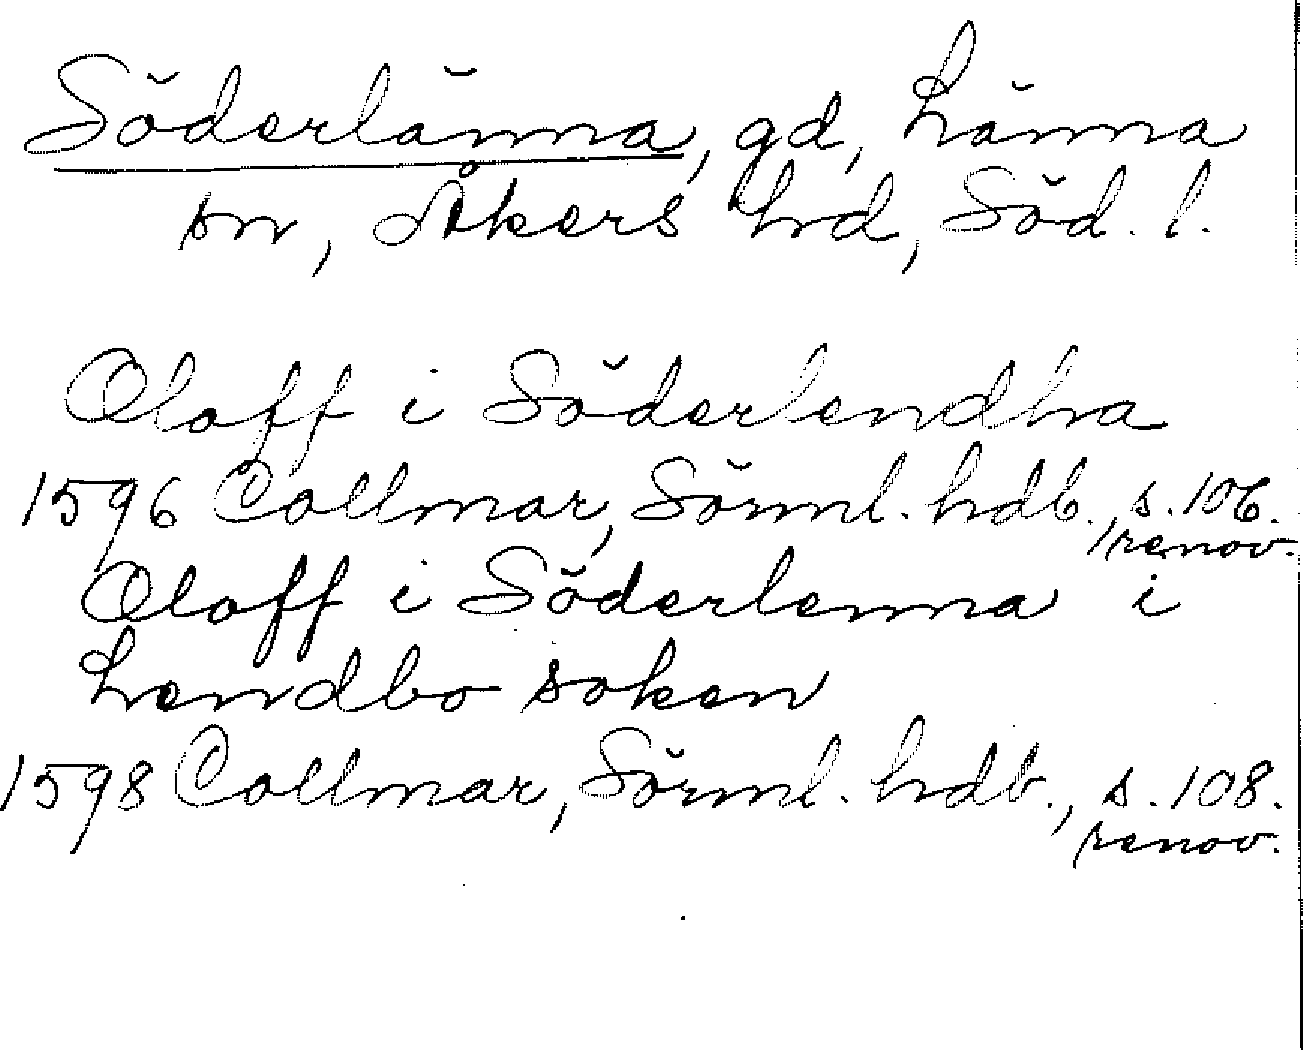 Söderlänna, gd, Länna
sn, Åkers hd, Söd. l.
Oloff i Söderlendha
1596 Collmar, Sörml. hdb., s. 106.
renov.
Oloff i Söderlenna i
Lendbo soken
1598 Collmar, Sörml. hdb., s. 108.
renov.